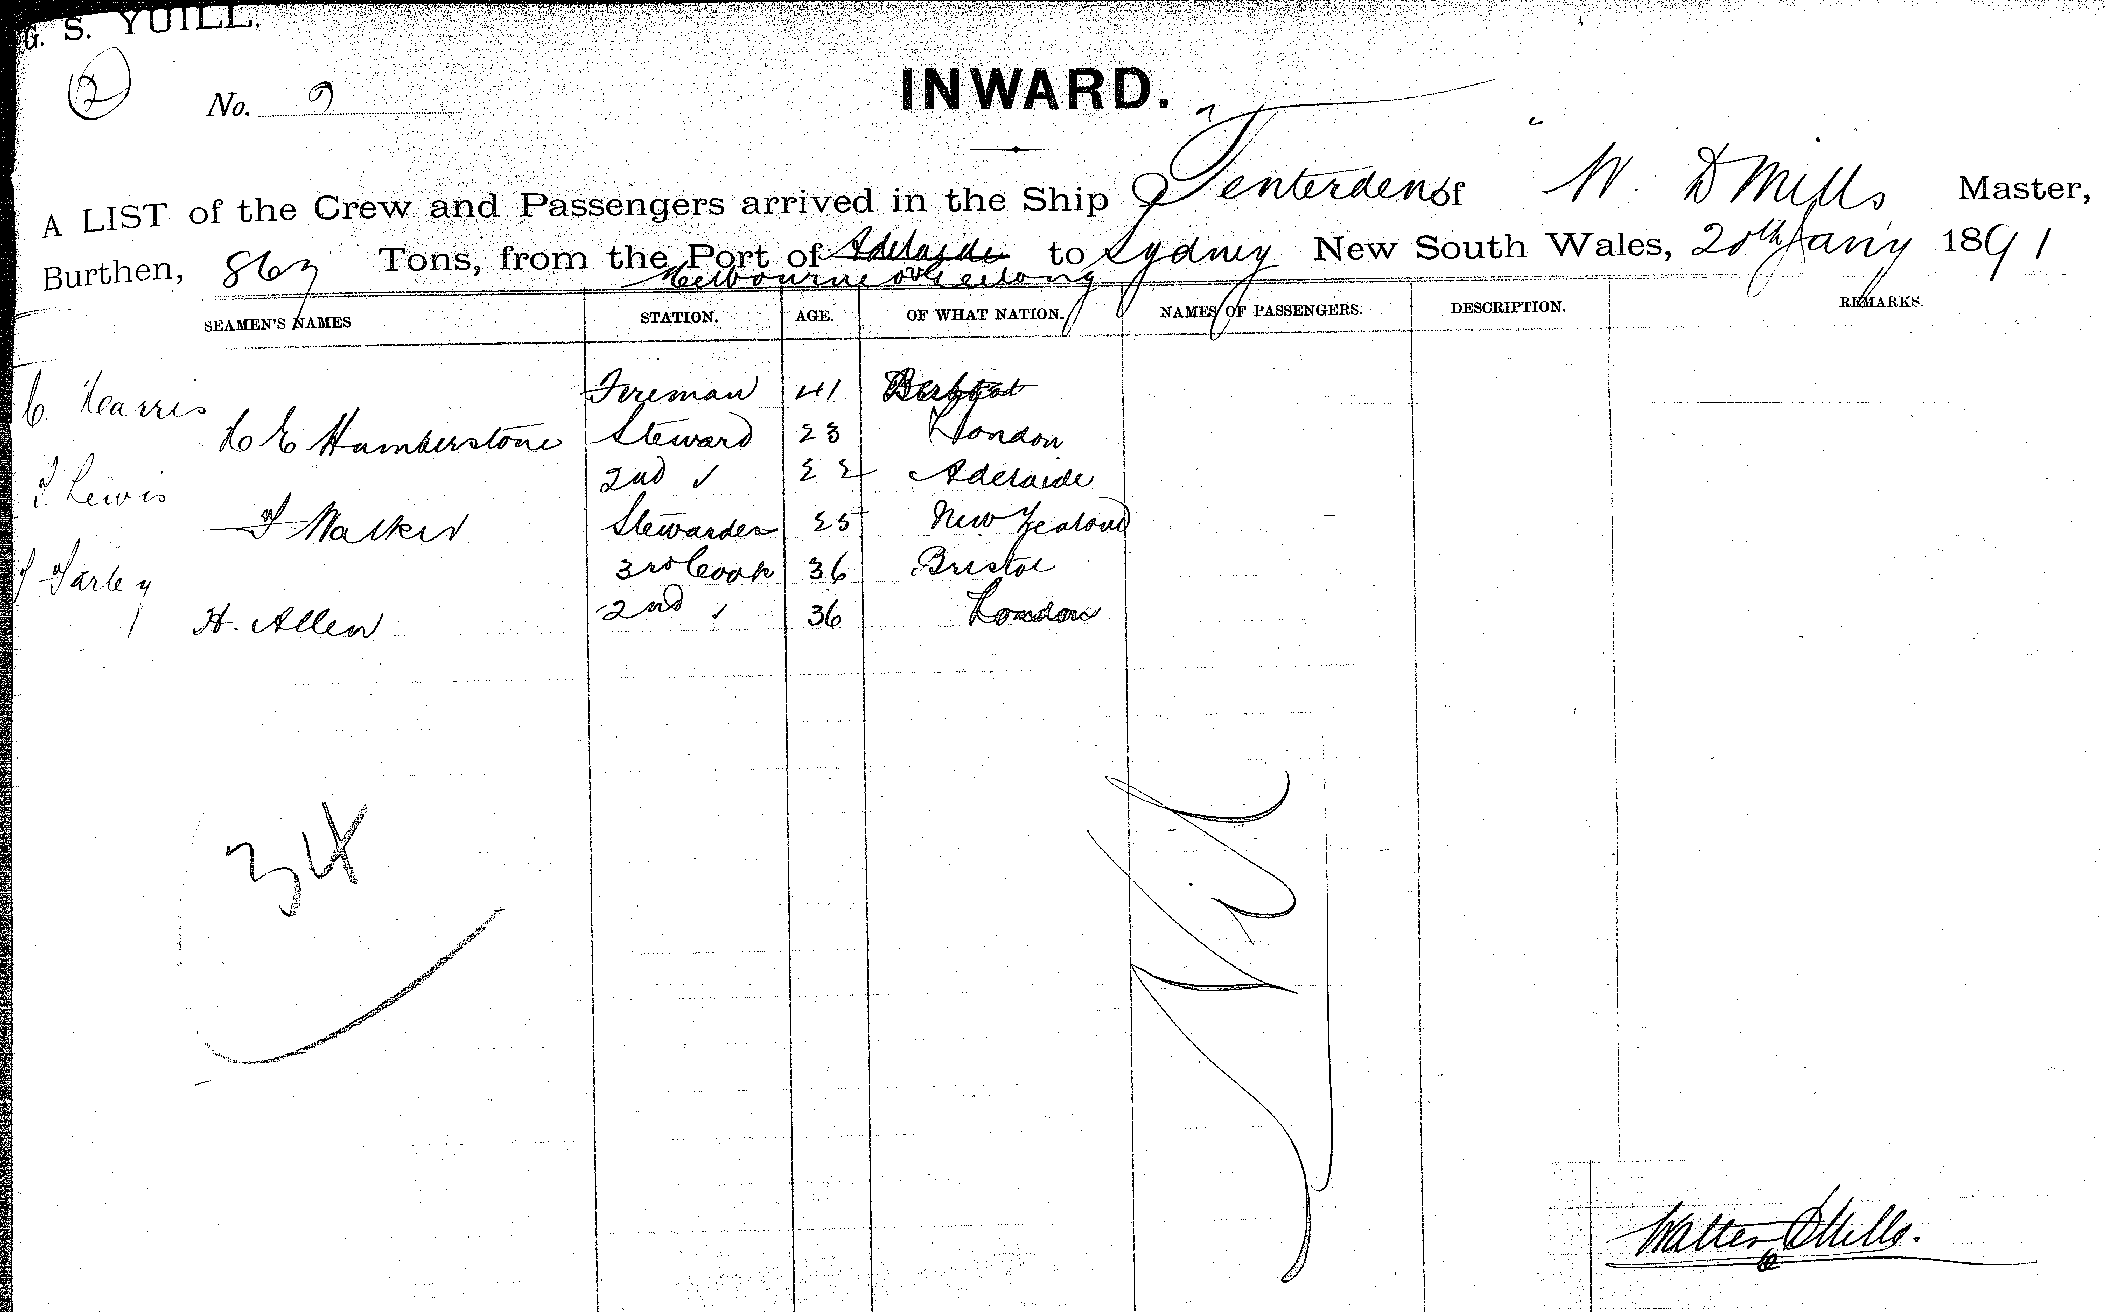 G. S. YUILL.
2
No. 2
INWARD.
A LIST of the Crew and Passengers arrived in the Ship "Tenterden" of W. D Mills Master,
Burthen, 867 Tons, from the Port of Adelaide to Sydney New South Wales, 20th Jan'y 1891
Melbourne Geelong
SEAMEN'S NAMES STATION. AGE. OF WHAT NATION. NAMES OF PASSENGERS. DESCRIPTION. REMARKS.
C. Harris Fireman 41
C E Humberstone Steward 23 London
T Lewis 2nd " 22 Adelaide
T Walker Stewardess 25 New Zealand
T Tarley 3rd Cook 36 Bristol
H. Allen 2nd " 36 London
34
Nil
Walter D Mills.